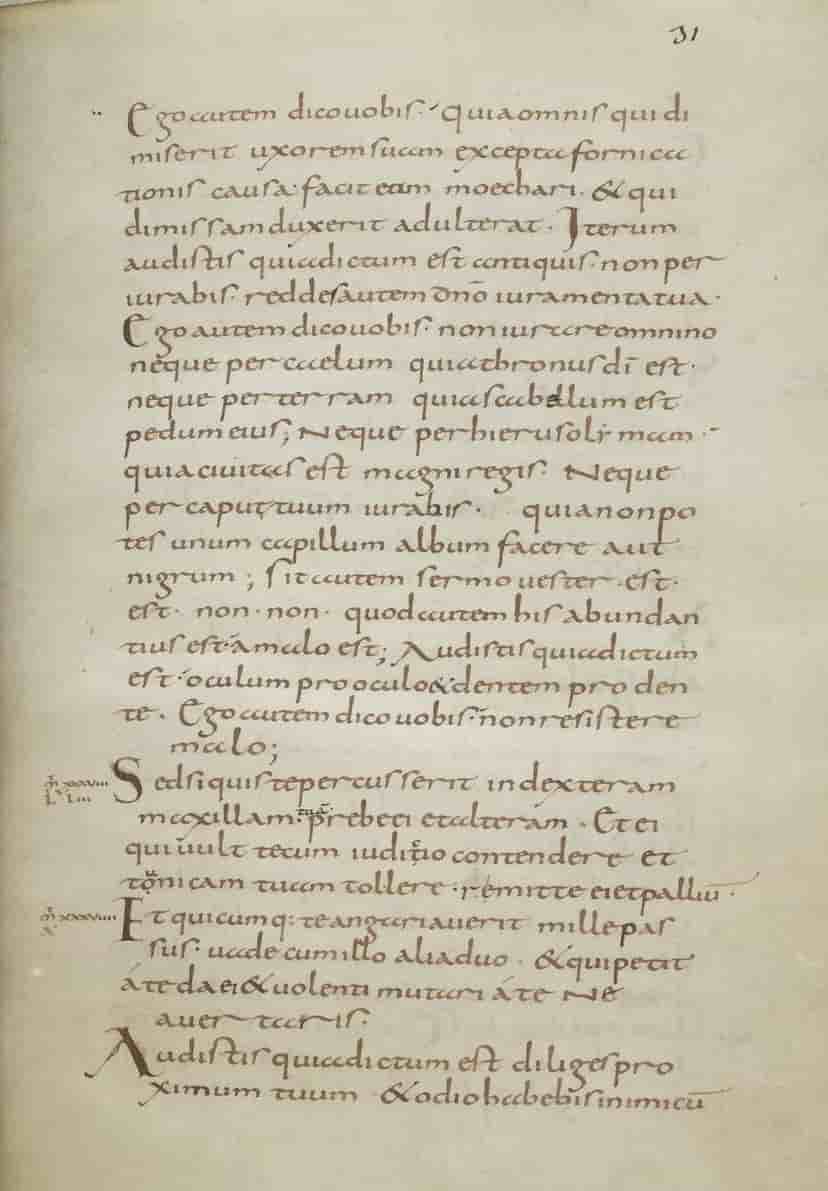 31
Ego autem dico uobis· quia omnis qui di
miserit uxorem suam excepta fornica
tionis causa· facit eam moechari· & qui
dimissam duxerit adulterat· Iterum
audistis quia dictum est antiquis· non per
iurabis· reddes autem dn̄o iuramenta tua·
Ego autem dico uobis· non iurare omnino
neque per caelum quia thronus dī est·
neque per terram quia scabellum est
pedum eius; Neque per hierusolymam·
quia ciuitas est magni regis· Neque
per caput tuum iurabis· quia non po
tes unum capillum album facere aut
nigrum; sit autem sermo uester· est·
est· non· non· quod autem his abundan
tius est· a malo est; Audistis quia dictum
est· oculum pro oculo & dentem pro den
te· Ego autem dico uobis· non resistere
malo;
Sed si quis te percusserit in dexteram
maxillam tuā· prebe ei et alteram· Et ei
qui uult tecum iuditio contendere et
tonicam tuam tollere· remitte ei et palliū·
Et quicumq: te angariauerit mille pas
sus· uade cum illo alia duo· & qui petit
a te da ei & uolenti mutuari a te Ne
auertaris·
Audistis quia dictum est diliges pro
ximum tuum & odio habebis inimicū